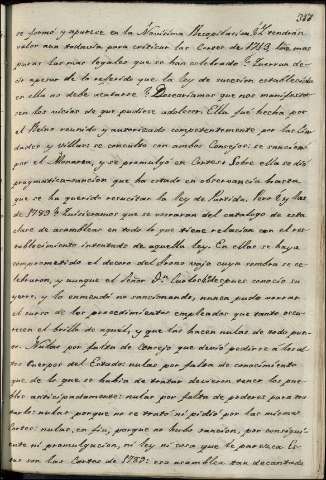 se formó y aparece en la Novísima Recopilacion ¿Y tendrán
valor aun todavia para criticar las Cortes de 1713, las mas
puras las mas legales que se han celebrado? ¿Querran de-
cir apesar de lo referido que la ley de sucesion establecida
en ella no debe acatarse? Deseariamos que nos manifestá-
sen los vicios de que pudiese adolecer. Ella fué hecha por
el Reino reunido y autorizado competentemente por las Ciu-
dades y villas: se consultó con ambos Consejos: se sancionó
por el Monarca, y se promulgó en Cortes: Sobre ella se dió
pragmatica-sancion que ha estado en observancia hasta
que se ha querido resucitar la ley de Partida. Pero ¿y las
de 1789? Quisieramos que se borraran del catalogo de esta
clase de asambleas en todo lo que tiene relacion con el res-
tablecimiento intentado de aquella ley. En ellas se haya
comprometido el decoro del trono bajo cuya sombra se ce-
lebraron, y aunque el Señor Dn. Carlos 4º despues conoció su
yerro, y lo enmendó no sancionando, nunca pudo borrar
el curso de los procedimientos empleados que tanto oscu-
recen el brillo de aquel, y que las hacen nulas de todo pun-
to. Nulas por falta de Consejo que devió pedirse á los al-
tos Cuerpos del Estado: nulas por falta de conocimiento
que de lo que se habia de tratar devieron tener los pue-
blos anticipadamente: nulas por falta de poderes para tra-
tarlo: nulas porque no se trató ni pidió por las mismas
Cortes: nulas, en fin, porque no hubo sancion, por consiguien-
te ni promulgacion, ni ley ni cosa que le parezca. Es-
tas son las Cortes de 1789: esa asamblea tan decantada